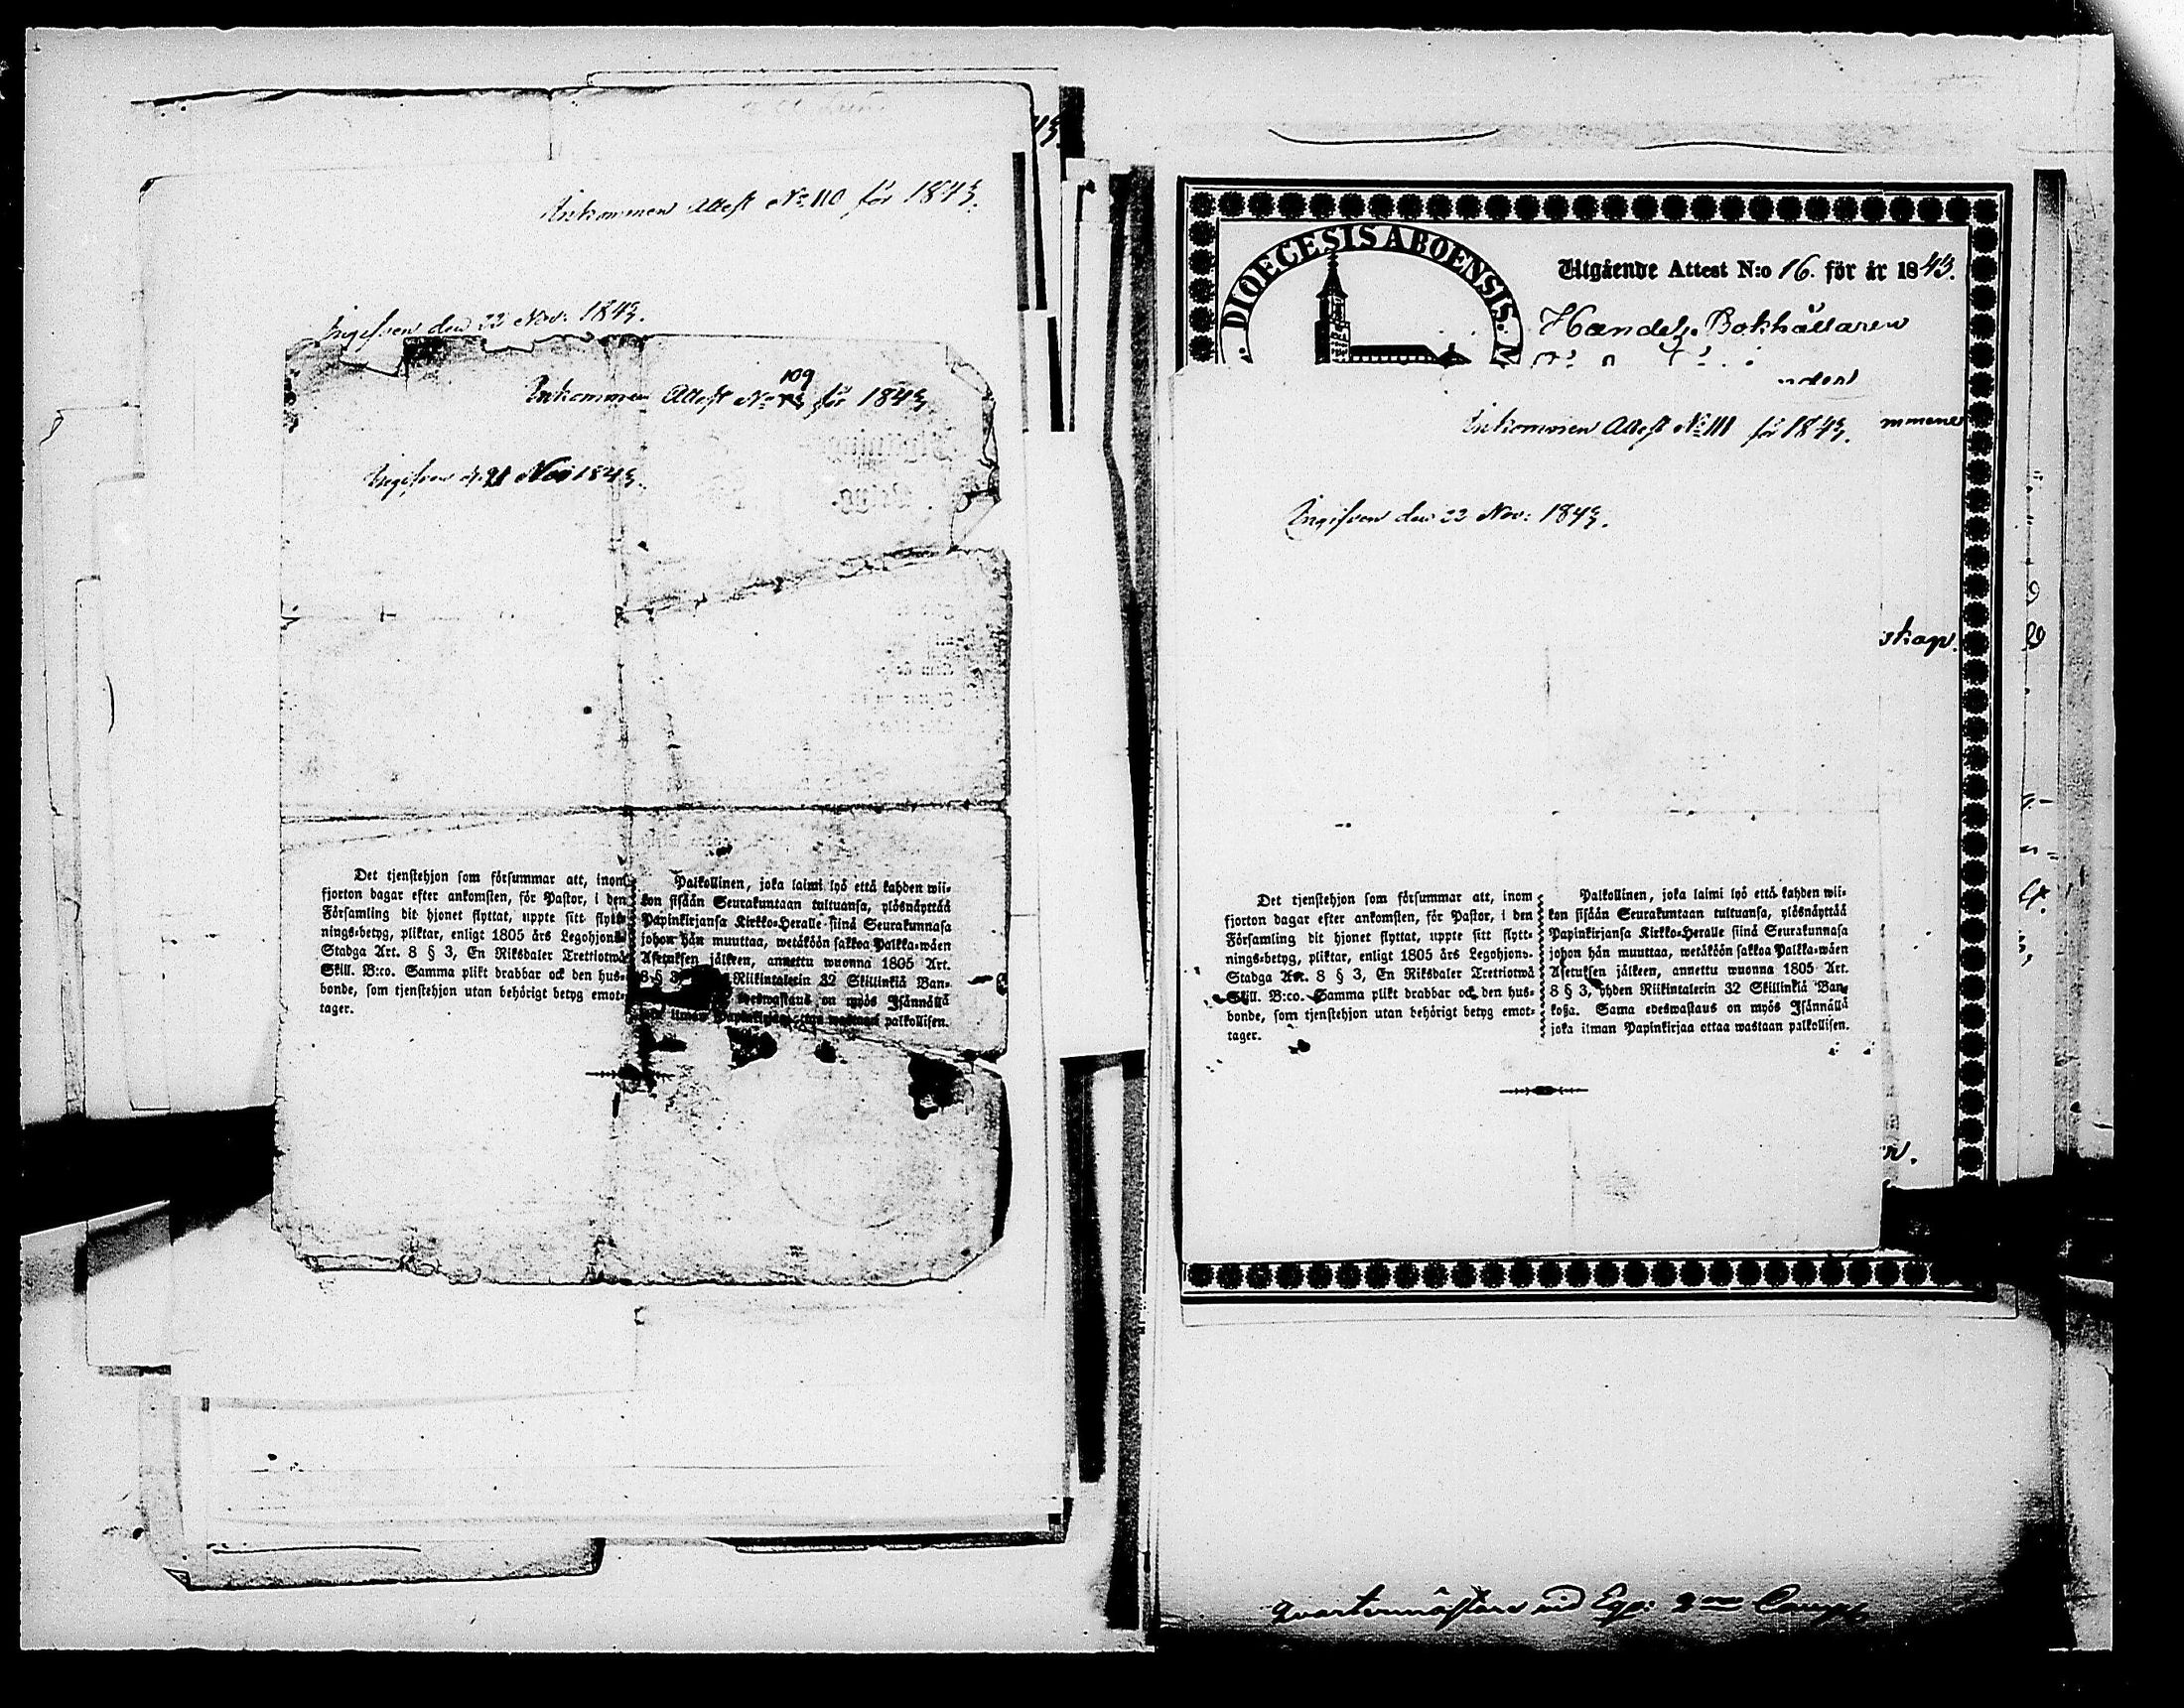 Inkommen Attest No 110 för 1843.
Ingifven den 22 Nov: 1843.
109
Inkommen Attest No för 1843
Ingifven d. 21 Nov 1843.
Det tjenstehjon som försummar att, inom
fjorton dagar efter ankomsten, för Pastor, i den
Församling dit hjonet flyttat, uppte sitt flytt-
nings-betyg, pliktar, enligt 1805 års Legohjons-
Stadga Art. 8 § 3, En Riksdaler Trettiotwå
Skill. B:co. Samma plikt drabbar ock den hus-
bonde, som tjenstehjon utan behörigt betyg emot-
tager.
Palkollinen, joka laimi lyö että kahden wii-
kon sisään Seurakuntaan tultuansa, ylösnäyttää
Papinkirjansa Kirkko-Heralle siinä Seurakunnasa
johon hän muuttaa, wetäköön sakkoa Palkka-wäen
Asetuksen jälkeen, annettu wuonna 1805 Art.
8 § 3, Riikintalerin 32 Skillinkiä Ban-
edeswastaus on myös Isännällä
ilman Papinkirjaa ottaa wastaan palkollisen.
DIOECESIS ABOENSIS.
Utgående Attest N:o 16. för år 1843.
Handels Bokhållaren
Inkommen Attest No 111 för 1843.
mmene
Ingifven den 22 Nov: 1843.
skap.
Det tjenstehjon som försummar att, inom
fjorton dagar efter ankomsten, för Pastor, i den
Församling dit hjonet flyttat, uppte sitt flytt-
nings-betyg, pliktar, enligt 1805 års Legohjons-
Stadga Art. 8 § 3, En Riksdaler Trettiotwå
Skill. B:co. Samma plikt drabbar ock den hus-
bonde, som tjenstehjon utan behörigt betyg emot-
tager.
Palkollinen, joka laimi lyö että kahden wii-
kon sisään Seurakuntaan tultuansa, ylösnäyttää
Papinkirjansa Kirkko-Heralle siinä Seurakunnasa
johon hän muuttaa, wetäköön sakkoa Palkka-wäen
Asetuksen jälkeen, annettu wuonna 1805 Art.
8 § 3, yhden Riikintalerin 32 Skillinkiä Ban-
koßa. Sama edeswastaus on myös Isännällä
joka ilman Papinkirjaa ottaa wastaan palkollisen.